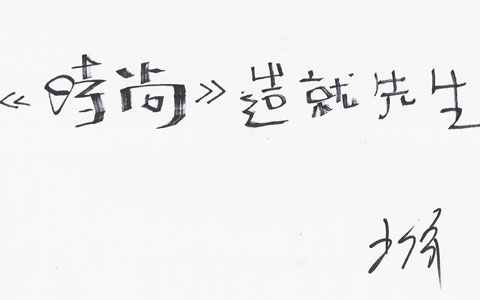 《時尚》造就先生